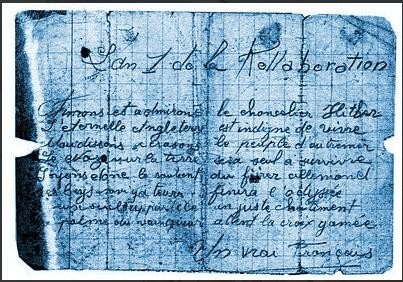 L'an 1 de la Kollaboration
Aimons et admirons le chancelier Hitler
L'eternelle Angleterre est indigne de vivre
Maudissons ecrasons le peuple d'outremer
Le Nazi sur la terre sera seul a survivre
Soyons donc le soutient du fürer allemend
des boys finira l'odyssée
un juste chatiment
palme du vainqueur attent la croix gamée
Un vrai Français